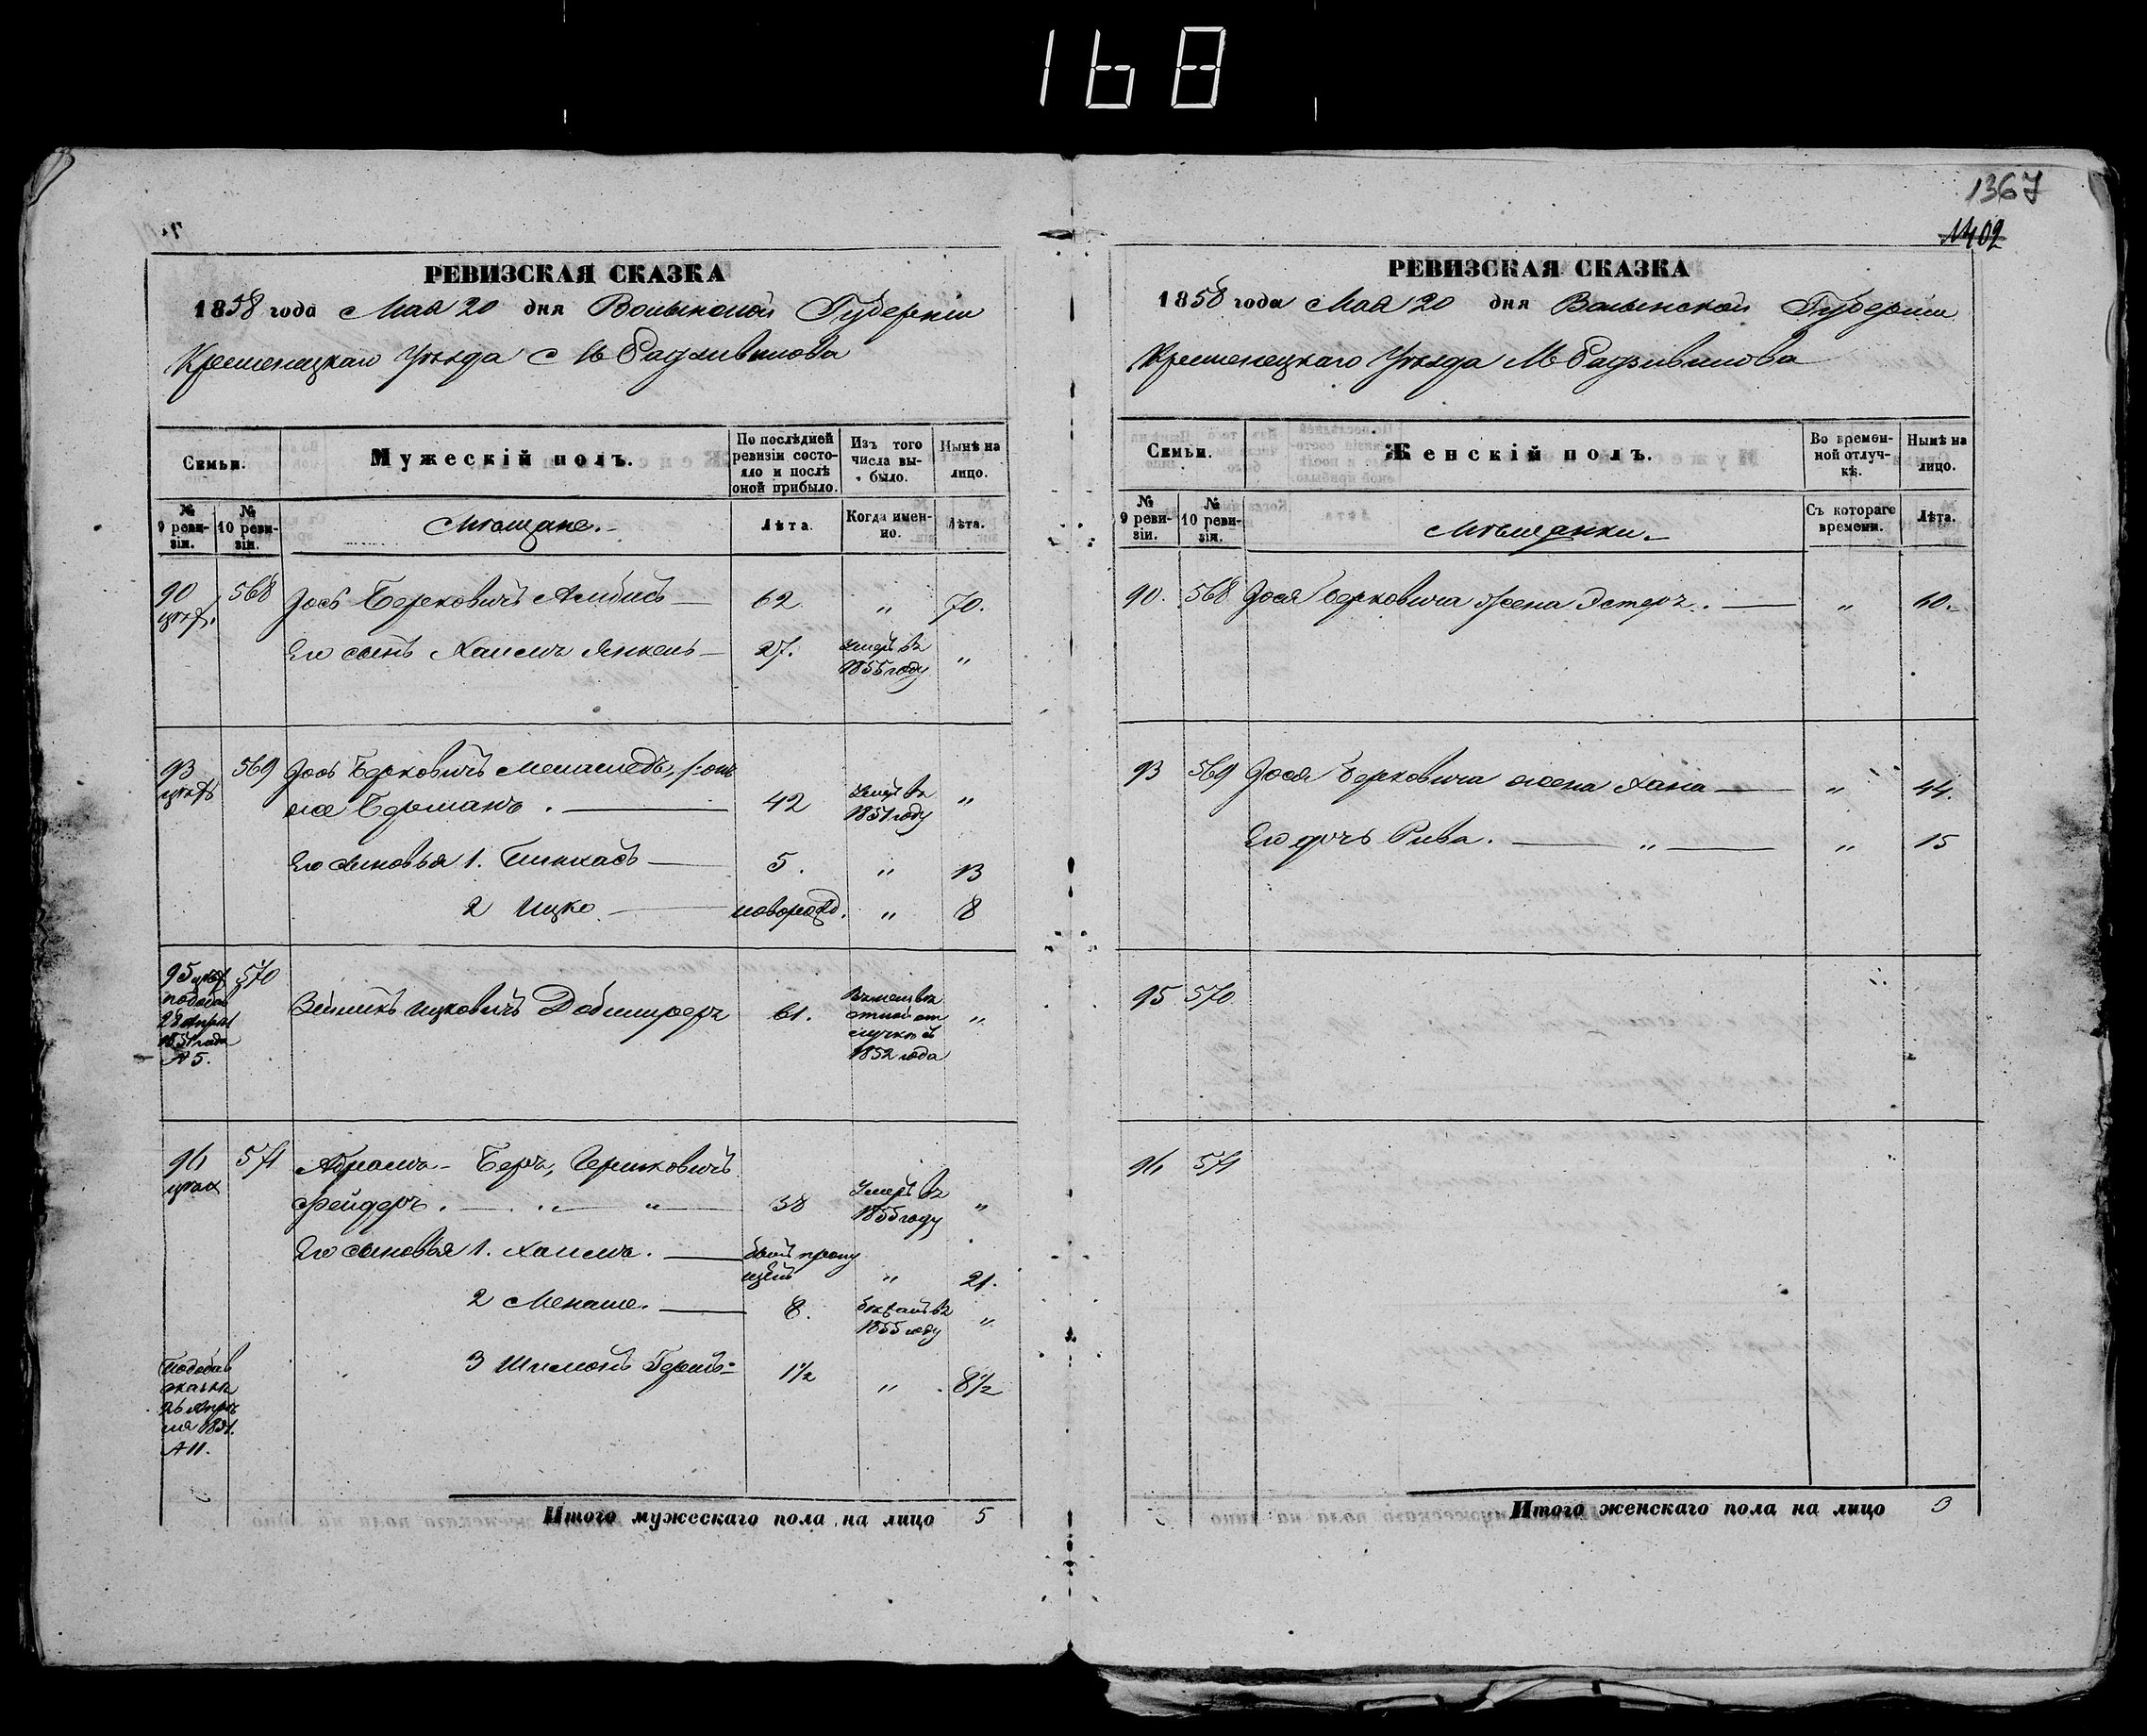 168
1367
1402
РЕВИЗСКАЯ СКАЗКА
1858 года Мая 20 дня Волынской Губерніи
Кременецкаго Уѣзда М Радзивилова
Семьи.
Мужескій полъ.
По послѣдней ревизіи состояло и послѣ оной прибыло.
Изъ того числа выбыло.
Нынѣ на лицо.
№ 9 ревизіи.
№ 10 ревизіи.
Мѣщане.
Лѣта.
Когда именно.
Лѣта.
90 568 Іось Берковичъ 62 " 70.
Его сынъ Хаимъ Янкель 27. Умеръ въ 1855 году "
93 569 Іось Берковичъ
онже Берманъ 42 Умеръ въ 1851 году "
Его сыновья 1. Пинхасъ 5. " 13
2 Ицко новорожд. " 8
95 570
Ицковичъ 61. 1852 года "
28 Апрѣля
1851 года
№ 5.
96 571 Абрамъ-Беръ Гершковичъ
Фейдеръ 38 Умеръ въ 1855 году "
Его сыновья 1. Хаимъ. былъ пропущенъ " 21.
2 Менаше. 8. 1855 году "
3 Шимонъ Гершъ 1½ " 8½
26 Апрѣля 1851.
№ 11.
Итого мужескаго пола на лицо 5
РЕВИЗСКАЯ СКАЗКА
1858 года Мая 20 дня Волынской Губерніи
Кременецкаго Уѣзда М Радзивилова
Семьи.
Женскій полъ.
Во временной отлучкѣ.
Нынѣ на лицо.
№ 9 ревизіи.
№ 10 ревизіи.
Мѣщанки.
Съ котораго времени.
Лѣта.
90. 568 Іося Берковича жена Эстеръ. " 40.
93 569 Іося Берковича жена Хана " 44.
Его дочь Рива. " " 15
95 570
96 571
Итого женскаго пола на лицо 3